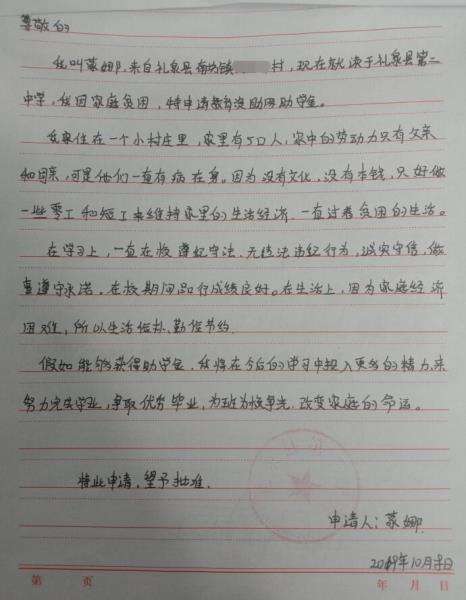 尊敬的
我叫蒙娜,来自礼泉县南坊镇 村,现在就读于礼泉县第二
中学,我因家庭贫困,特申请教育资助助学金。
我家住在一个小村庄里,家里有5口人,家中的劳动力只有父亲
和母亲,可是他们一直有病在身。因为没有文化,没有本钱,只好做
一些零工和短工来维持家里的生活经济,一直过着贫困的生活。
在学习上,一直在校遵纪守法,无违法违纪行为,诚实守信,做
事遵守承诺。在校期间品行成绩良好。在生活上,因为家庭经济
困难,所以生活俭朴、勤俭节约.
假如能够获得助学金,我将在今后的学习中投入更多的精力,来
努力完成学业,争取优秀毕业,为班为校争光,改变家庭的命运。
特此申请,望予批准.
申请人:蒙娜
2019年10月 日
第 页 年 月 日